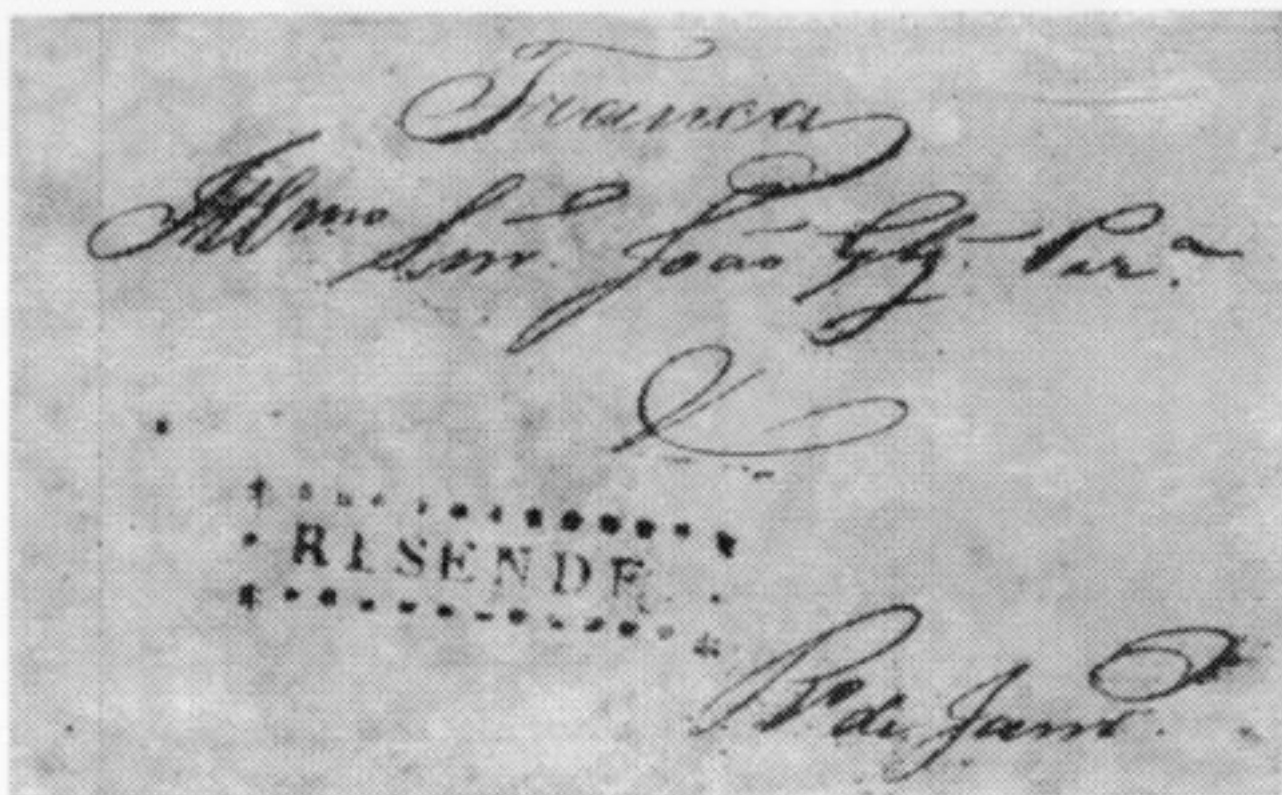 Franca
Illmo Snr. João Glz. Per.ª
RISENDE
Rº de Janrº.